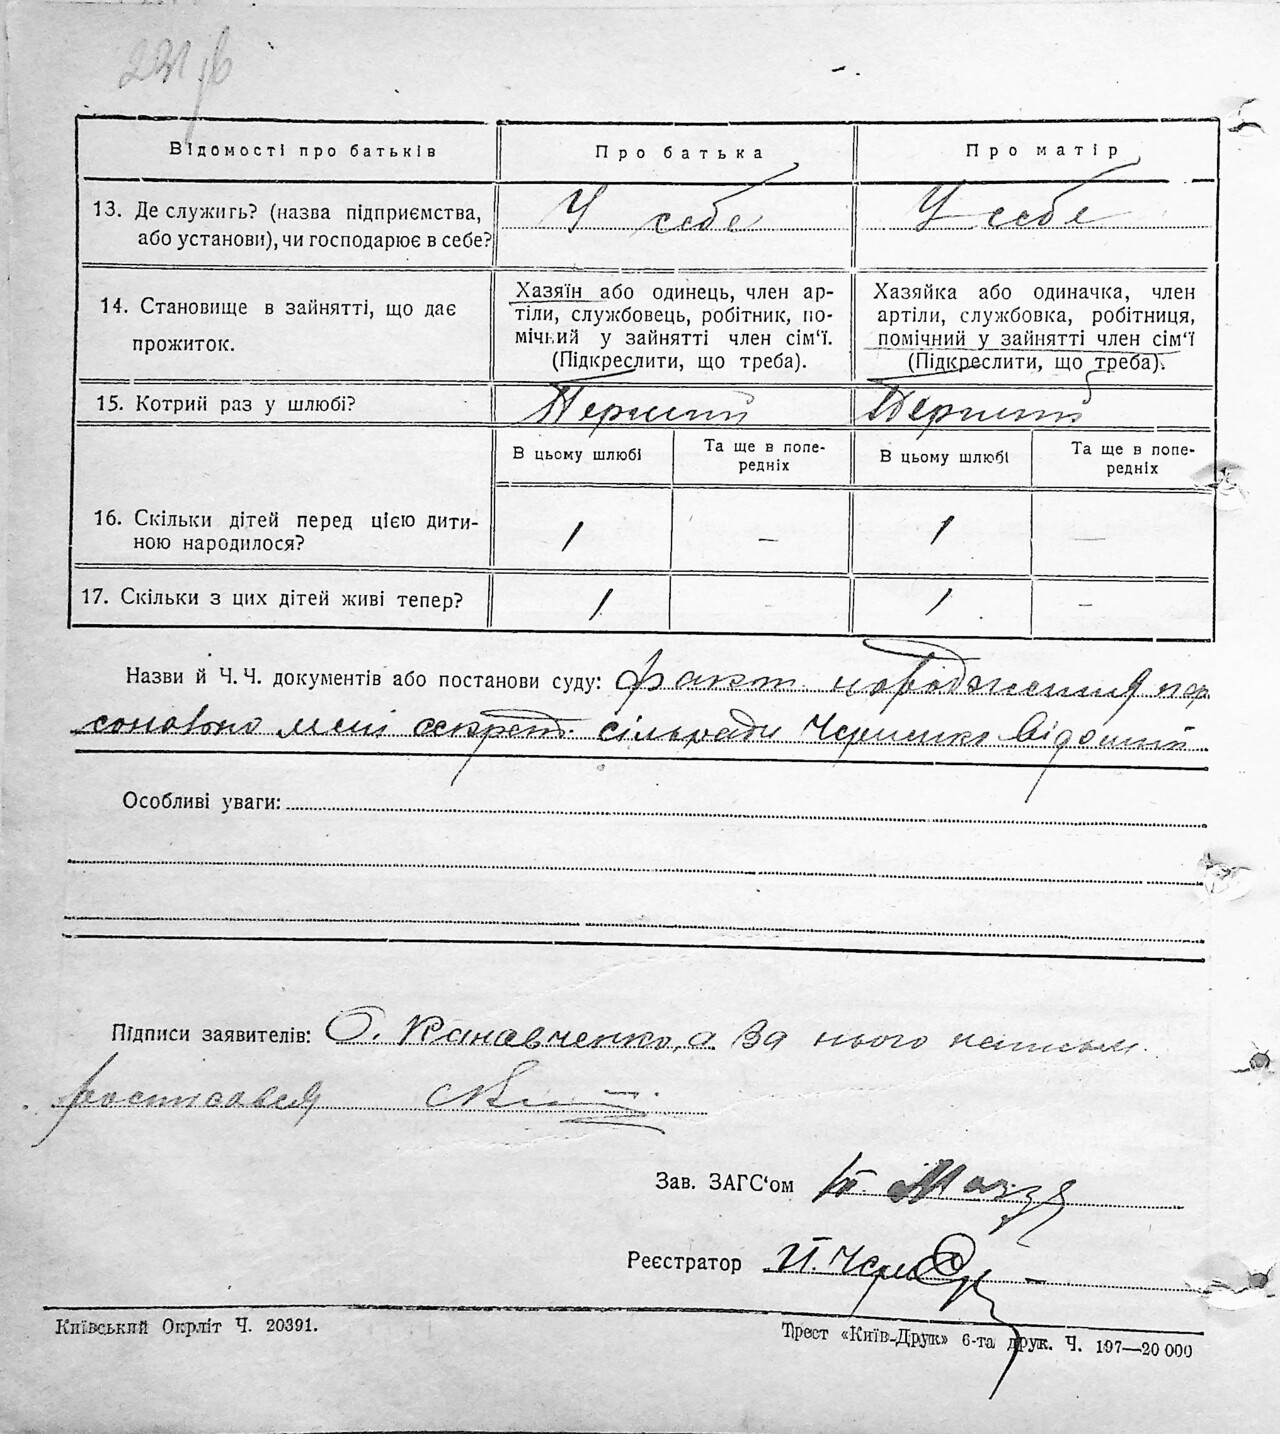 Відомості про батьків Про батька Про матір
13. Де служить? (назва підприємства, У себе У себе
або установи), чи господарює в себе?
14. Становище в зайнятті, що дає
прожиток.
Хазяїн або одинець, член ар-
тіли, службовець, робітник, по-
мічний у зайнятті член сім‘ї.
(Підкреслити, що треба).
Хазяйка або одиначка, член
артіли, службовка, робітниця,
помічний у зайнятті член сім‘ї
(Підкреслити, що треба).
15. Котрий раз у шлюбі? Перший Перший
В цьому шлюбі
Та ще в попе-
редніх
В цьому шлюбі
Та ще в попе-
редніх
16. Скільки дітей перед цією дити- 1 – 1 —
ною народилося?
17. Скільки з цих дітей живі тепер? 1 – 1 –
Назви й Ч.Ч. документів або постанови суду: факт народження пер
сонально мені секрет. сільради Черненко відомий
Особливі уваги:
Підписи заявителів: О. за нього
росписався
Зав. ЗАГС‘ом
Реєстратор
Київський Окрліт Ч. 20391.
Трест «Київ-Друк» 6-та друк. Ч. 197—20 000